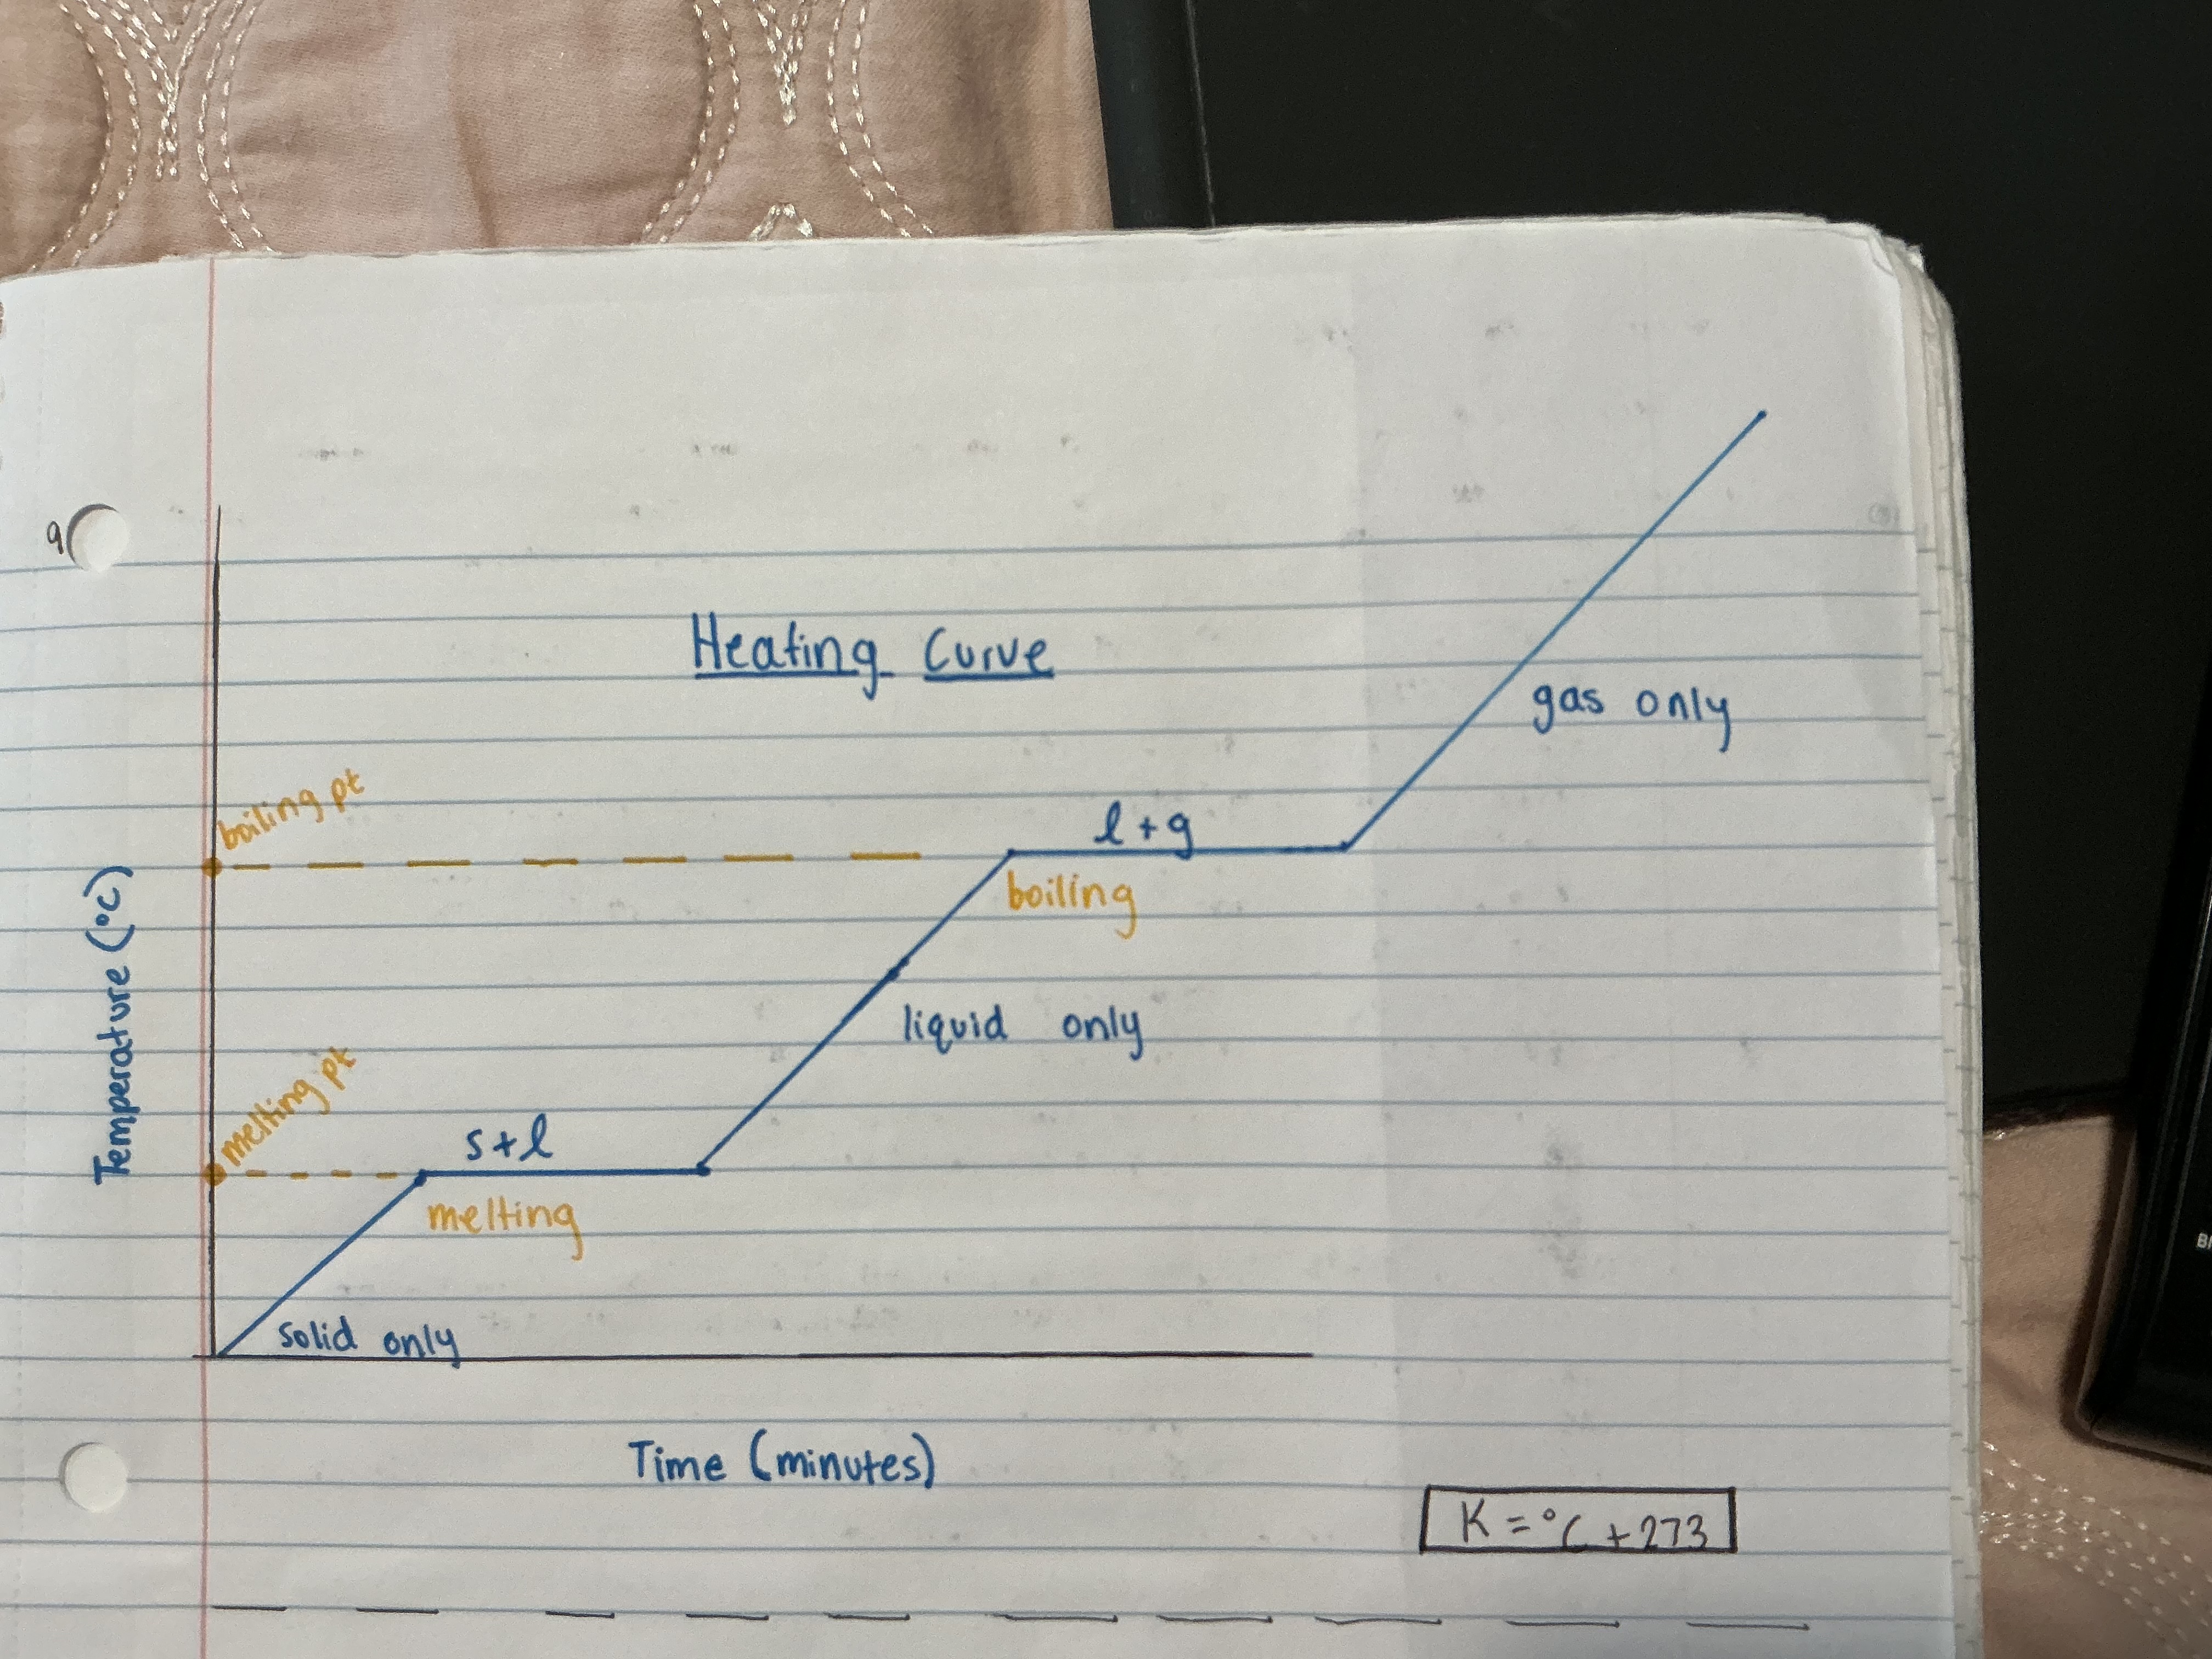 9
Heating Curve
gas only
boiling pt
l + g
boiling
Temperature (°C)
liquid only
melting pt
s + l
melting
solid only
Time (minutes)
K = °C + 273